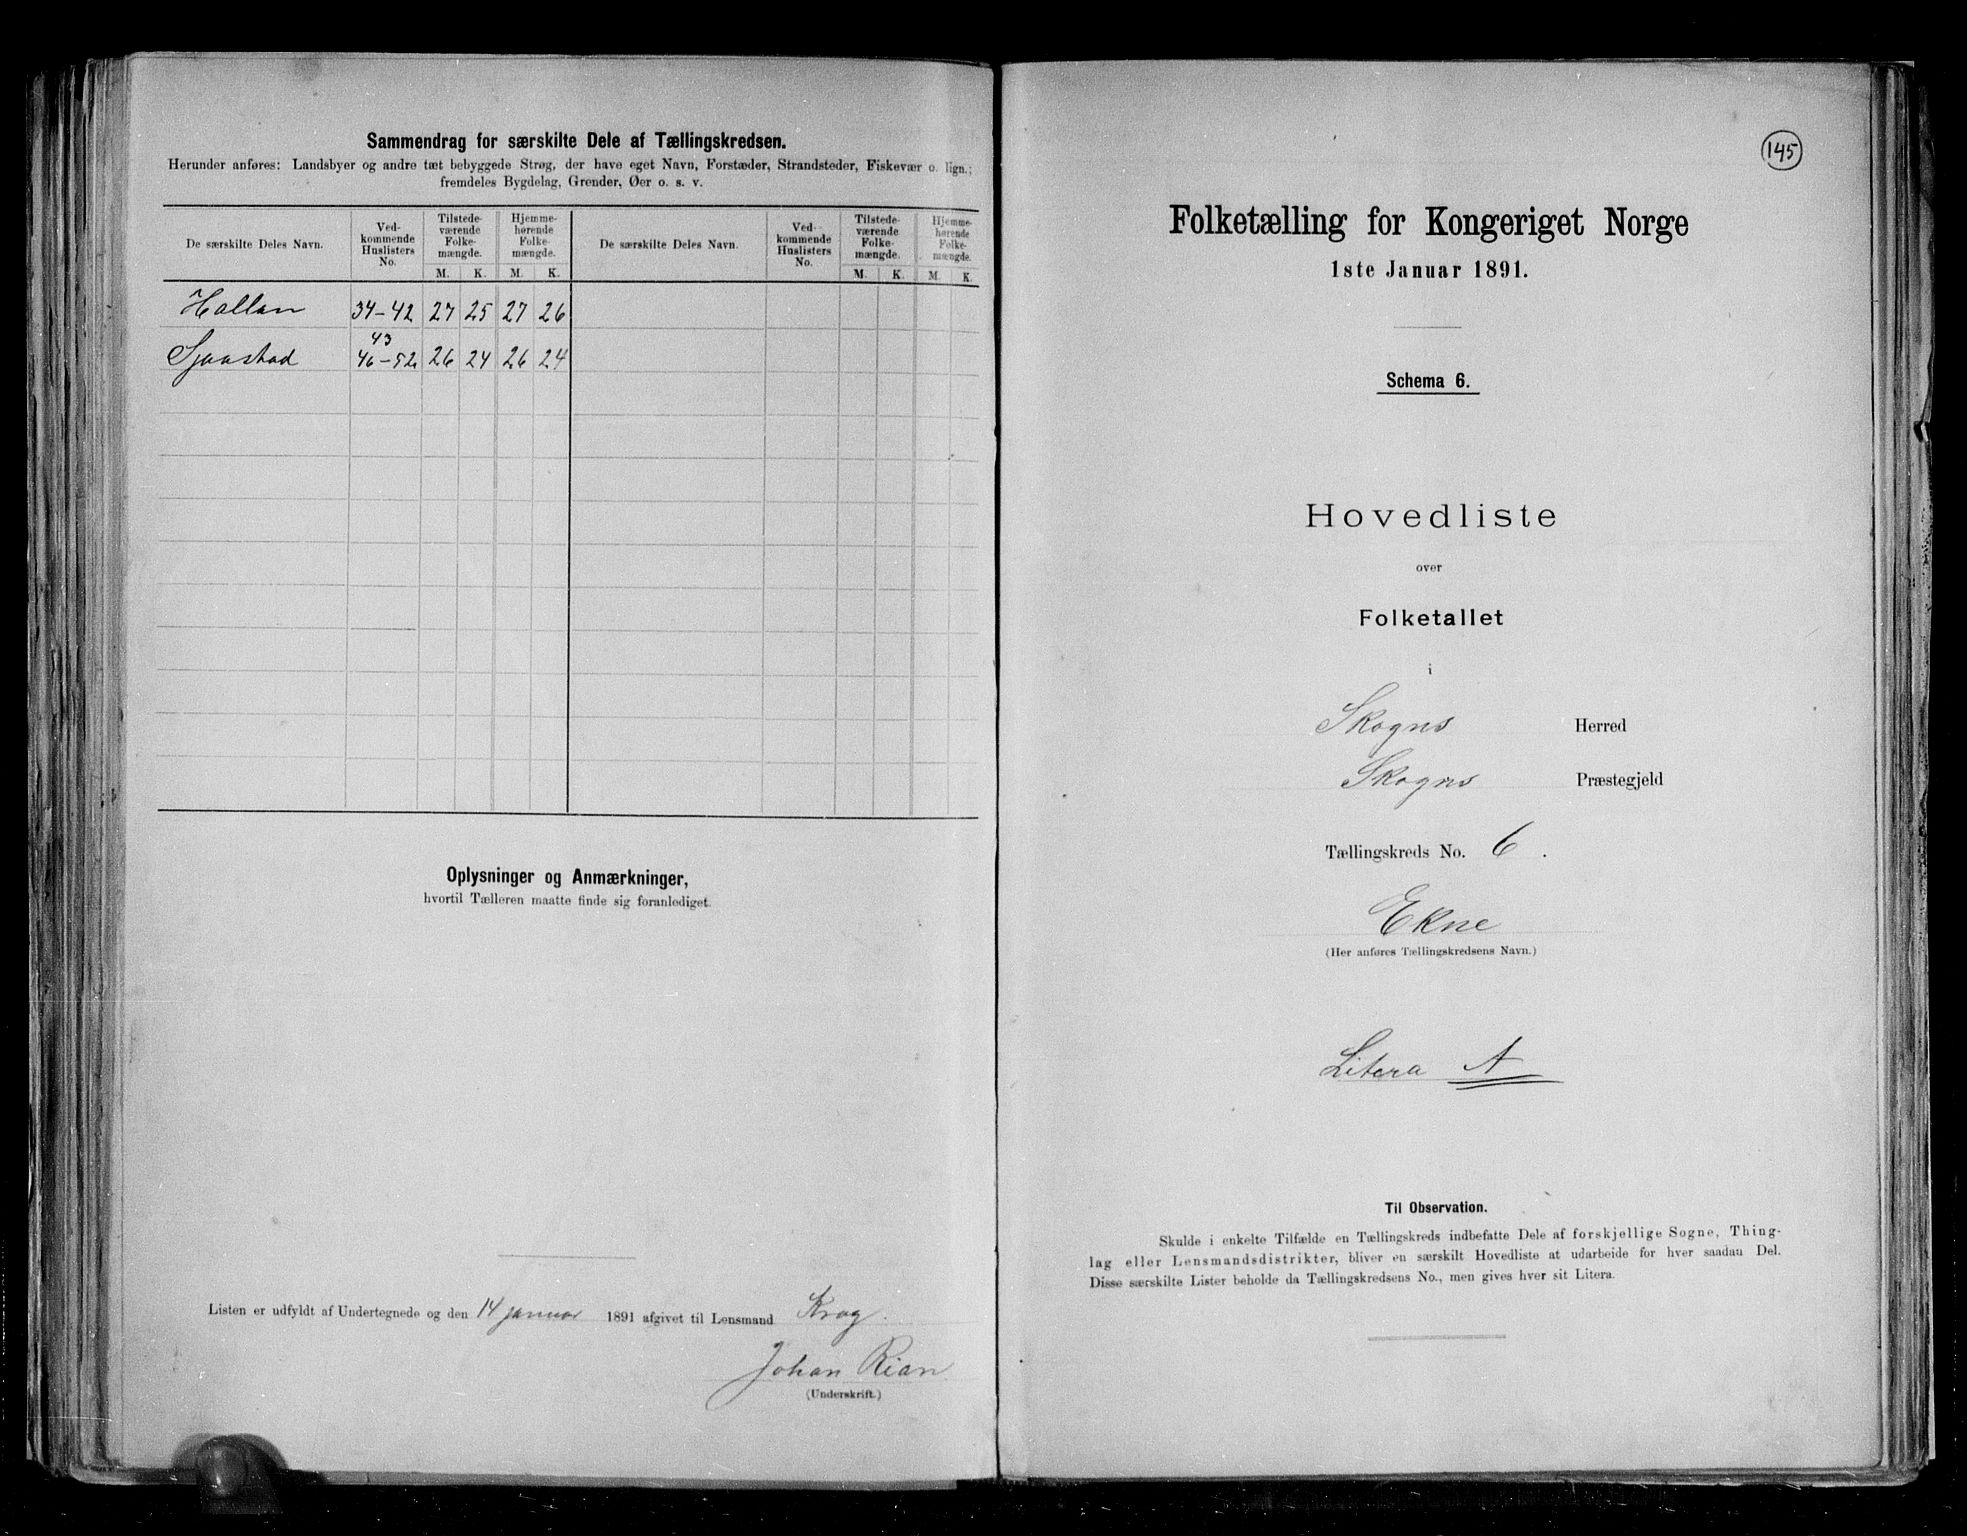 Sammendrag for særskilte Dele af Tællingskredsen.
Herunder anføres: Landsbyer og andre tæt bebyggede Strøg, der have eget Navn, Forstæder, Strandsteder, Fiskevær o. lign.;
fremdeles Bygdelag, Grender, Øer o. s. v.
De særskilte Deles Navn. Ved-kommende Huslisters No. Tilstede-værende Folke-mængde. Hjemme-hørende Folke-mængde. De særskilte Deles Navn. Ved-kommende Huslisters No. Tilstede-værende Folke-mængde. Hjemme-hørende Folke-mængde.
M. K. M. K. M. K. M. K.
Hallan 34-42 27 25 27 26
43
46-52 26 24 26 24
Oplysninger og Anmærkninger,
hvortil Tælleren maatte finde sig foranlediget.
Listen er udfyldt af Undertegnede og den 14 januar 1891 afgivet til Lensmand Krog.
Johan Rian
(Underskrift.)
145
Folketælling for Kongeriget Norge
1ste Januar 1891.
Schema 6.
Hovedliste
over
Folketallet
i
Skogns Herred
Skogns Præstegjeld
Tællingskreds No. 6.
Ekne
(Her anføres Tællingskredsens Navn.)
Litera A
Til Observation.
Skulde i enkelte Tilfælde en Tællingskreds indbefatte Dele af forskjellige Sogne, Thing-
lag eller Lensmandsdistrikter, bliver en særskilt Hovedliste at udarbeide for hver saadan Del.
Disse særskilte Lister beholde da Tællingskredsens No., men gives hver sit Litera.